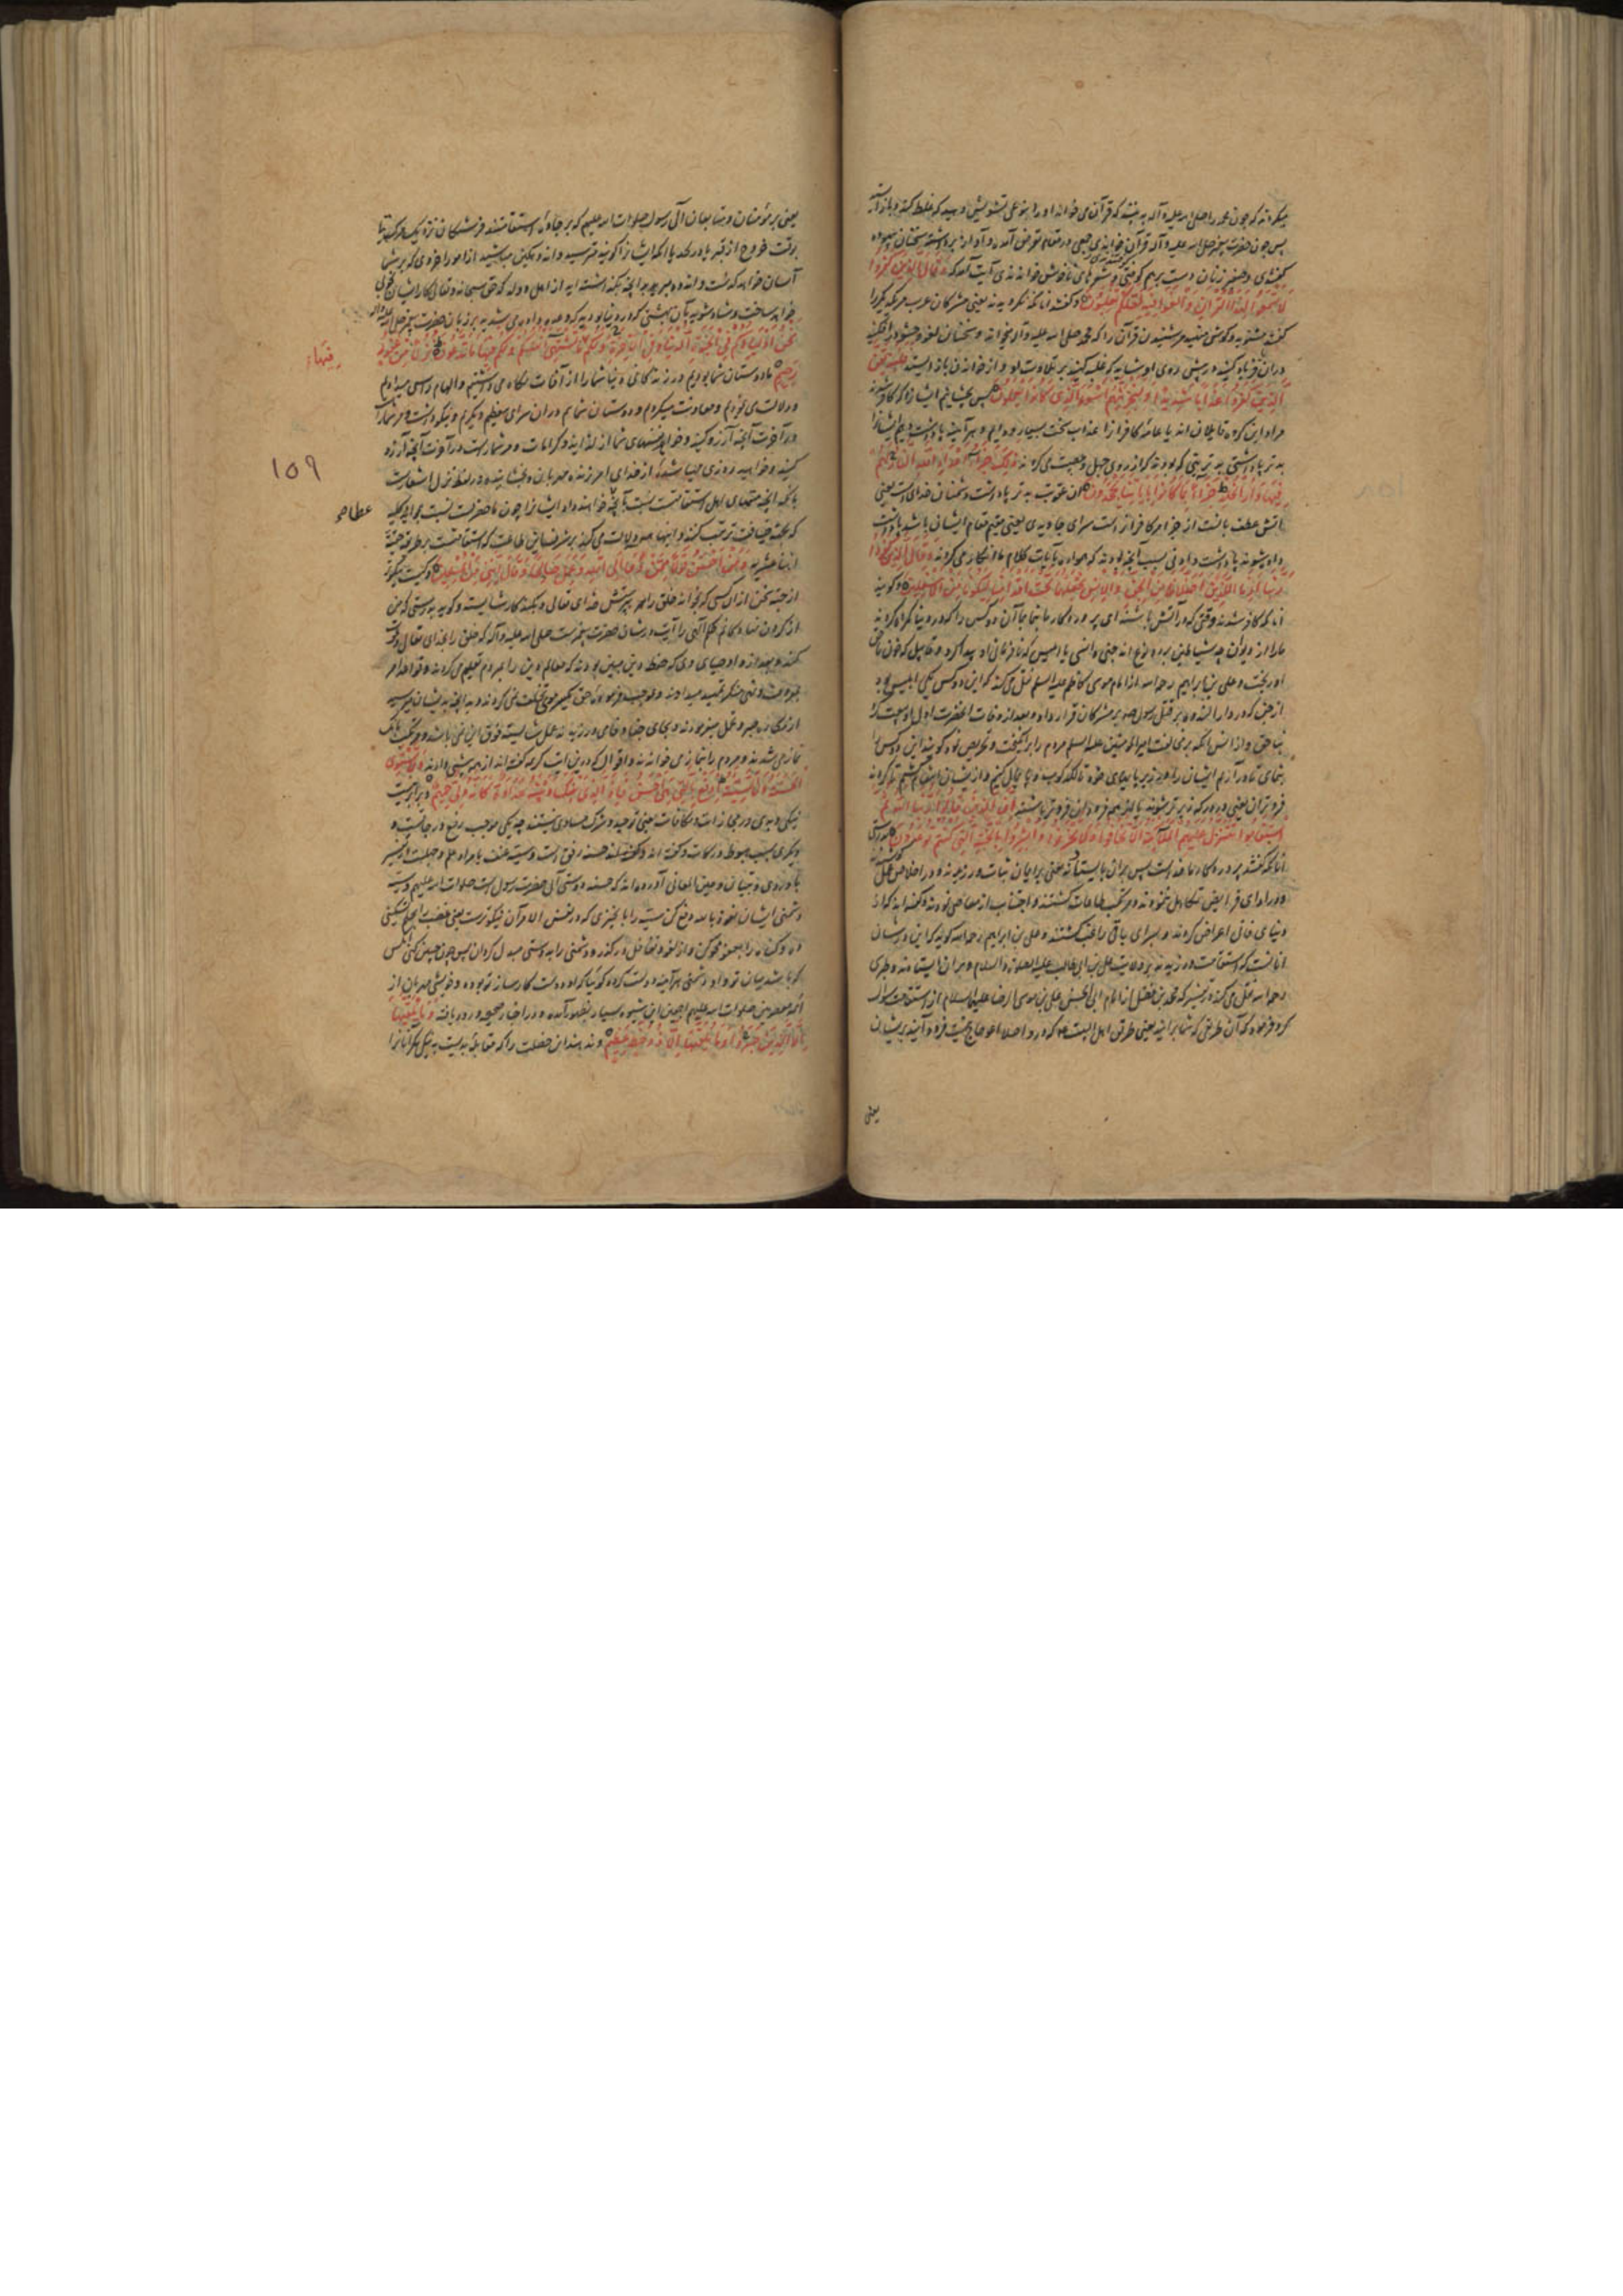 میکردند که چون محمد را صلی الله علیه و آله به بینند که قرآن می خواند او را بنوعی تشویش دهید که غلط کند و باز ایستد
پس چون حضرت پیغمبر صلی الله علیه و آله قرآن خواندی جمعی در مقام تعرض آمده و آواز برداشته سخنان بیهوده
گفتندی و صفیر زنان دست برهم کوفتندی و شعرهای ناخوش خواندندی آیت آمد که وَقَالَ الَّذِينَ كَفَرُوا
لَا تَسْمَعُوا لِهَذَا الْقُرْآنِ وَالْغَوْا فِيهِ لَعَلَّكُمْ تَغْلِبُونَ و گفتند آنانکه نگرویدند یعنی مشرکان عرب مر یکدیگر را
که مشنوید و گوش منهید مر شنیدن قرآن را که محمد صلی الله علیه و آله میخواند و سخنان لغو و حشو در افکنید
در آن و فریاد کنید در پیش روی او شاید که غلبه کنید بر تلاوت او و از خواندن باز دایستد فَلَنُذِيقَنَّ
الَّذِينَ كَفَرُوا عَذَابًا شَدِيدًا وَلَنَجْزِيَنَّهُمْ أَسْوَأَ الَّذِي كَانُوا يَعْمَلُونَ پس بچشانیم ایشانرا که کافر شدند
مراد این گروه قایلان اند یا عامه کافران را عذاب سخت بسیار و هر آینه پاداشت دهیم ایشانرا
بدتر پاداشتی بدتر چیزی که بودند که از روی جهل و عصبیت می کردند ذَلِكَ جَزَاءُ أَعْدَاءِ اللَّهِ النَّارُ لَهُمْ
فِيهَا دَارُ الْخُلْدِ جَزَاءً بِمَا كَانُوا بِآيَاتِنَا يَجْحَدُونَ آن عقوبت بدتر پاداشت دشمنان خدای است یعنی
آتش عطف بیانست از جزا مر کافران راست سرای جاویدی یعنی مقیم مقام ایشان باشد پاداشت
داده شوند پاداشت دادنی بسبب آنچه بودند که همواره بآیات کلام ما انکار می کردند وَقَالَ الَّذِينَ كَفَرُوا
رَبَّنَا أَرِنَا اللَّذَيْنِ أَضَلَّانَا مِنَ الْجِنِّ وَالْإِنْسِ نَجْعَلْهُمَا تَحْتَ أَقْدَامِنَا لِيَكُونَا مِنَ الْأَسْفَلِينَ و گویند
آنانکه کافر شدند وقتی که در آتش باشند ای پروردگار ما بنما بما آن دو کس را که در دنیا گمراه کردند
ما را از دیوان چه شیاطین بر دو نوع اند جنی و انسی یا ابلیس که نافرمانی او پیدا کرد و قابیل که خون ناحق
او ریخت و علی بن ابراهیم رحمه الله از امام موسی کاظم علیه السلم نقل می کند که این دو کس یکی ابلیس بود
از جن که در دار الندوه بر قتل رسول صلعم مشرکان قرار داد و بعد از وفات آنحضرت اول با او بیعت کرد
بناحق و از انس آنکه بر مخالفت امیر المومنین علیه السلم مردم را برانگیخت و تحریص نمود گویند این دو کس را
بنمای تا در آریم ایشان را در زیر پایهای خود تا لگدکوب و پایمال کنیم و از ایشان انتقام کشیم تا گردند
فروتران یعنی در درکه زیرتر شوند یا از هم فرودان فروتر باشند إِنَّ الَّذِينَ قَالُوا رَبُّنَا اللَّهُ ثُمَّ
اسْتَقَامُوا تَتَنَزَّلُ عَلَيْهِمُ الْمَلَائِكَةُ أَلَّا تَخَافُوا وَلَا تَحْزَنُوا وَأَبْشِرُوا بِالْجَنَّةِ الَّتِي كُنْتُمْ تُوعَدُونَ بدرستی
آنانکه گفتند پروردگار ما خداست پس بر آن بایستادند یعنی بر ایمان ثبات ورزیدند و در اخلاص عمل کوشیدند
و در ادای فرایض تکاهل ننمودند و مرتکب طاعات گشتند و اجتناب از معاصی نمودند و گفته اند که از
دنیای فانی اعراض کردند و بسرای باقی راغب گشتند و علی بن ابراهیم رحمه الله گوید که این در شان
آنانست که استقامت ورزیدند بر ولایت علی بن ابی طالب علیه الصلوة و السلام و بر آن ایستادند و طبرسی
رحمه الله نقل می کند در تفسیر که محمد بن فضیل از امام ابی الحسن علی بن موسی الرضا علیه السلام از استقامت سوال
کرد فرمود که آن طریقی که شما بر آنید یعنی طریق اهل البیت ع که در او اصلا اعوجاج نیست فرود آیند بر ایشان
یعنی
یعنی بر مؤمنان و متابعان آل رسول صلوات الله علیهم که بر جاده استقامتند فرشتگان نزدیک مرگ یا
بوقت خروج از قبر یا در لحد با آنکه ایشانرا گویند مترسید و اندوهگین مباشید از امور اخروی که بر شما
آسان خواهد گذشت و اندوه مبرید بر آنچه بگذاشته اید از اهل و ولد که حق سبحانه و تعالی کار ایشان نیکو
خواهد ساخت و شاد شوید بآن بهشتی که در دنیا بودید که وعده داده می شدید بر زبان حضرت پیغمبر صلی الله علیه و آله
نَحْنُ أَوْلِيَاؤُكُمْ فِي الْحَيَاةِ الدُّنْيَا وَفِي الْآخِرَةِ وَلَكُمْ فِيهَا مَا تَشْتَهِي أَنْفُسُكُمْ وَلَكُمْ فِيهَا مَا تَدَّعُونَ نُزُلًا مِنْ غَفُورٍ
فیها
رَحِيمٍ ما دوستان شما بودیم در زندگانی دنیا شما را از آفات نگاه می داشتیم و الهام راستی میدادیم
و دلالت می نمودیم و معاونت میکردیم و دوستان شما هم در آن سرای معظم و مکرم و نیکو داشت و مر شماراست
در آخرت آنچه آرزو کنید و خواهد نفسهای شما از لذاید و کرامات و مر شماراست در آخرت آنچه آرزو
۱۵۹
کنید و خواهید روزی مهیا شده از خدای آمرزنده مهربان و بخشاینده و در لفظ نزل اشعاریست
بآنکه آنچه متمنای اهل استقامت است نسبت بآنچه خواهند داد ایشانرا چون ماحضریست نسبت
عطاها
که بجهت ضیافت ترتیب کنند و اینها همه دلالت می کند بر شرف این طاعت که استقامتست بر طریقه حقه
اثنا عشریه وَمَنْ أَحْسَنُ قَوْلًا مِمَّنْ دَعَا إِلَى اللَّهِ وَعَمِلَ صَالِحًا وَقَالَ إِنَّنِي مِنَ الْمُسْلِمِينَ و کیست نیکوتر
از جهت سخن از آن کسی که بخواند خلق را بپرستش خدای تعالی و بکند کار شایسته و گوید بدرستی که من
از گردن نهادگانم حکم الهی را آیت در شان حضرت پیغمبرست صلی الله علیه و آله که خلق را بخدای تعالی دعوت
کند و بعد از او اوصیای وی که حفظه دین مبین بودند که معالم دین را بمردم تعلیم می کردند و قواعد امر
بمعروف و نهی منکر تمهید میدادند و بموجب فرموده حق بهیچ موضع تخلف نمی کردند و به آنچه بدیشان میرسید
از مکاره صبر و تحمل مینمودند و بجای جفا وفا می ورزیدند عمل شایسته فوق این نمی باشد و مرتکب بانک
نماز می شدند و مردم را بنماز می خواندند و اقوال که درین آیت کریمه گفته اند ازینجا پیشی دادند وَلَا تَسْتَوِي
الْحَسَنَةُ وَلَا السَّيِّئَةُ ادْفَعْ بِالَّتِي هِيَ أَحْسَنُ فَإِذَا الَّذِي بَيْنَكَ وَبَيْنَهُ عَدَاوَةٌ كَأَنَّهُ وَلِيٌّ حَمِيمٌ و برابر نیست
نیکی و بدی در مجازات و مکافات یعنی توحید و شرک مساوی نیستند چه یکی موجب رفع درجاتست و
دیگری سبب هبوط درکات و گفته اند حسنه رفق است و سیئه عنف یا مراد علم و جهلست و تفسیر
باوردی و تبیان و عین المعانی آورده اند که حسنه دوستی آل حضرت رسول است صلوات الله علیهم و سیئه
دشمنی ایشان نعوذ بالله دفع کن سیئه را با چیزی که در نفس الامر آن نیکوترست یعنی غضب را بحلم تسکین
ده و گناه را بعفو محو کن و از لغو و تغافل درگذر و دشمنی را به دوستی مبدل گردان پس چون چنین کنی آنکس
که باشد میان تو و او دشمنی هر آینه دوست گردد گوئیا که او دوست کارساز تو بوده و خویشی مهربان از
ائمه معصومین صلوات الله علیهم اجمعین این شیوه بسیار بظهور آمده و در اخبار صحیحه ورود یافته وَمَا يُلَقَّاهَا
إِلَّا الَّذِينَ صَبَرُوا وَمَا يُلَقَّاهَا إِلَّا ذُو حَظٍّ عَظِيمٍ و ندهند این خصلت را که مقابله بدیست به نیکی مگر آنانرا